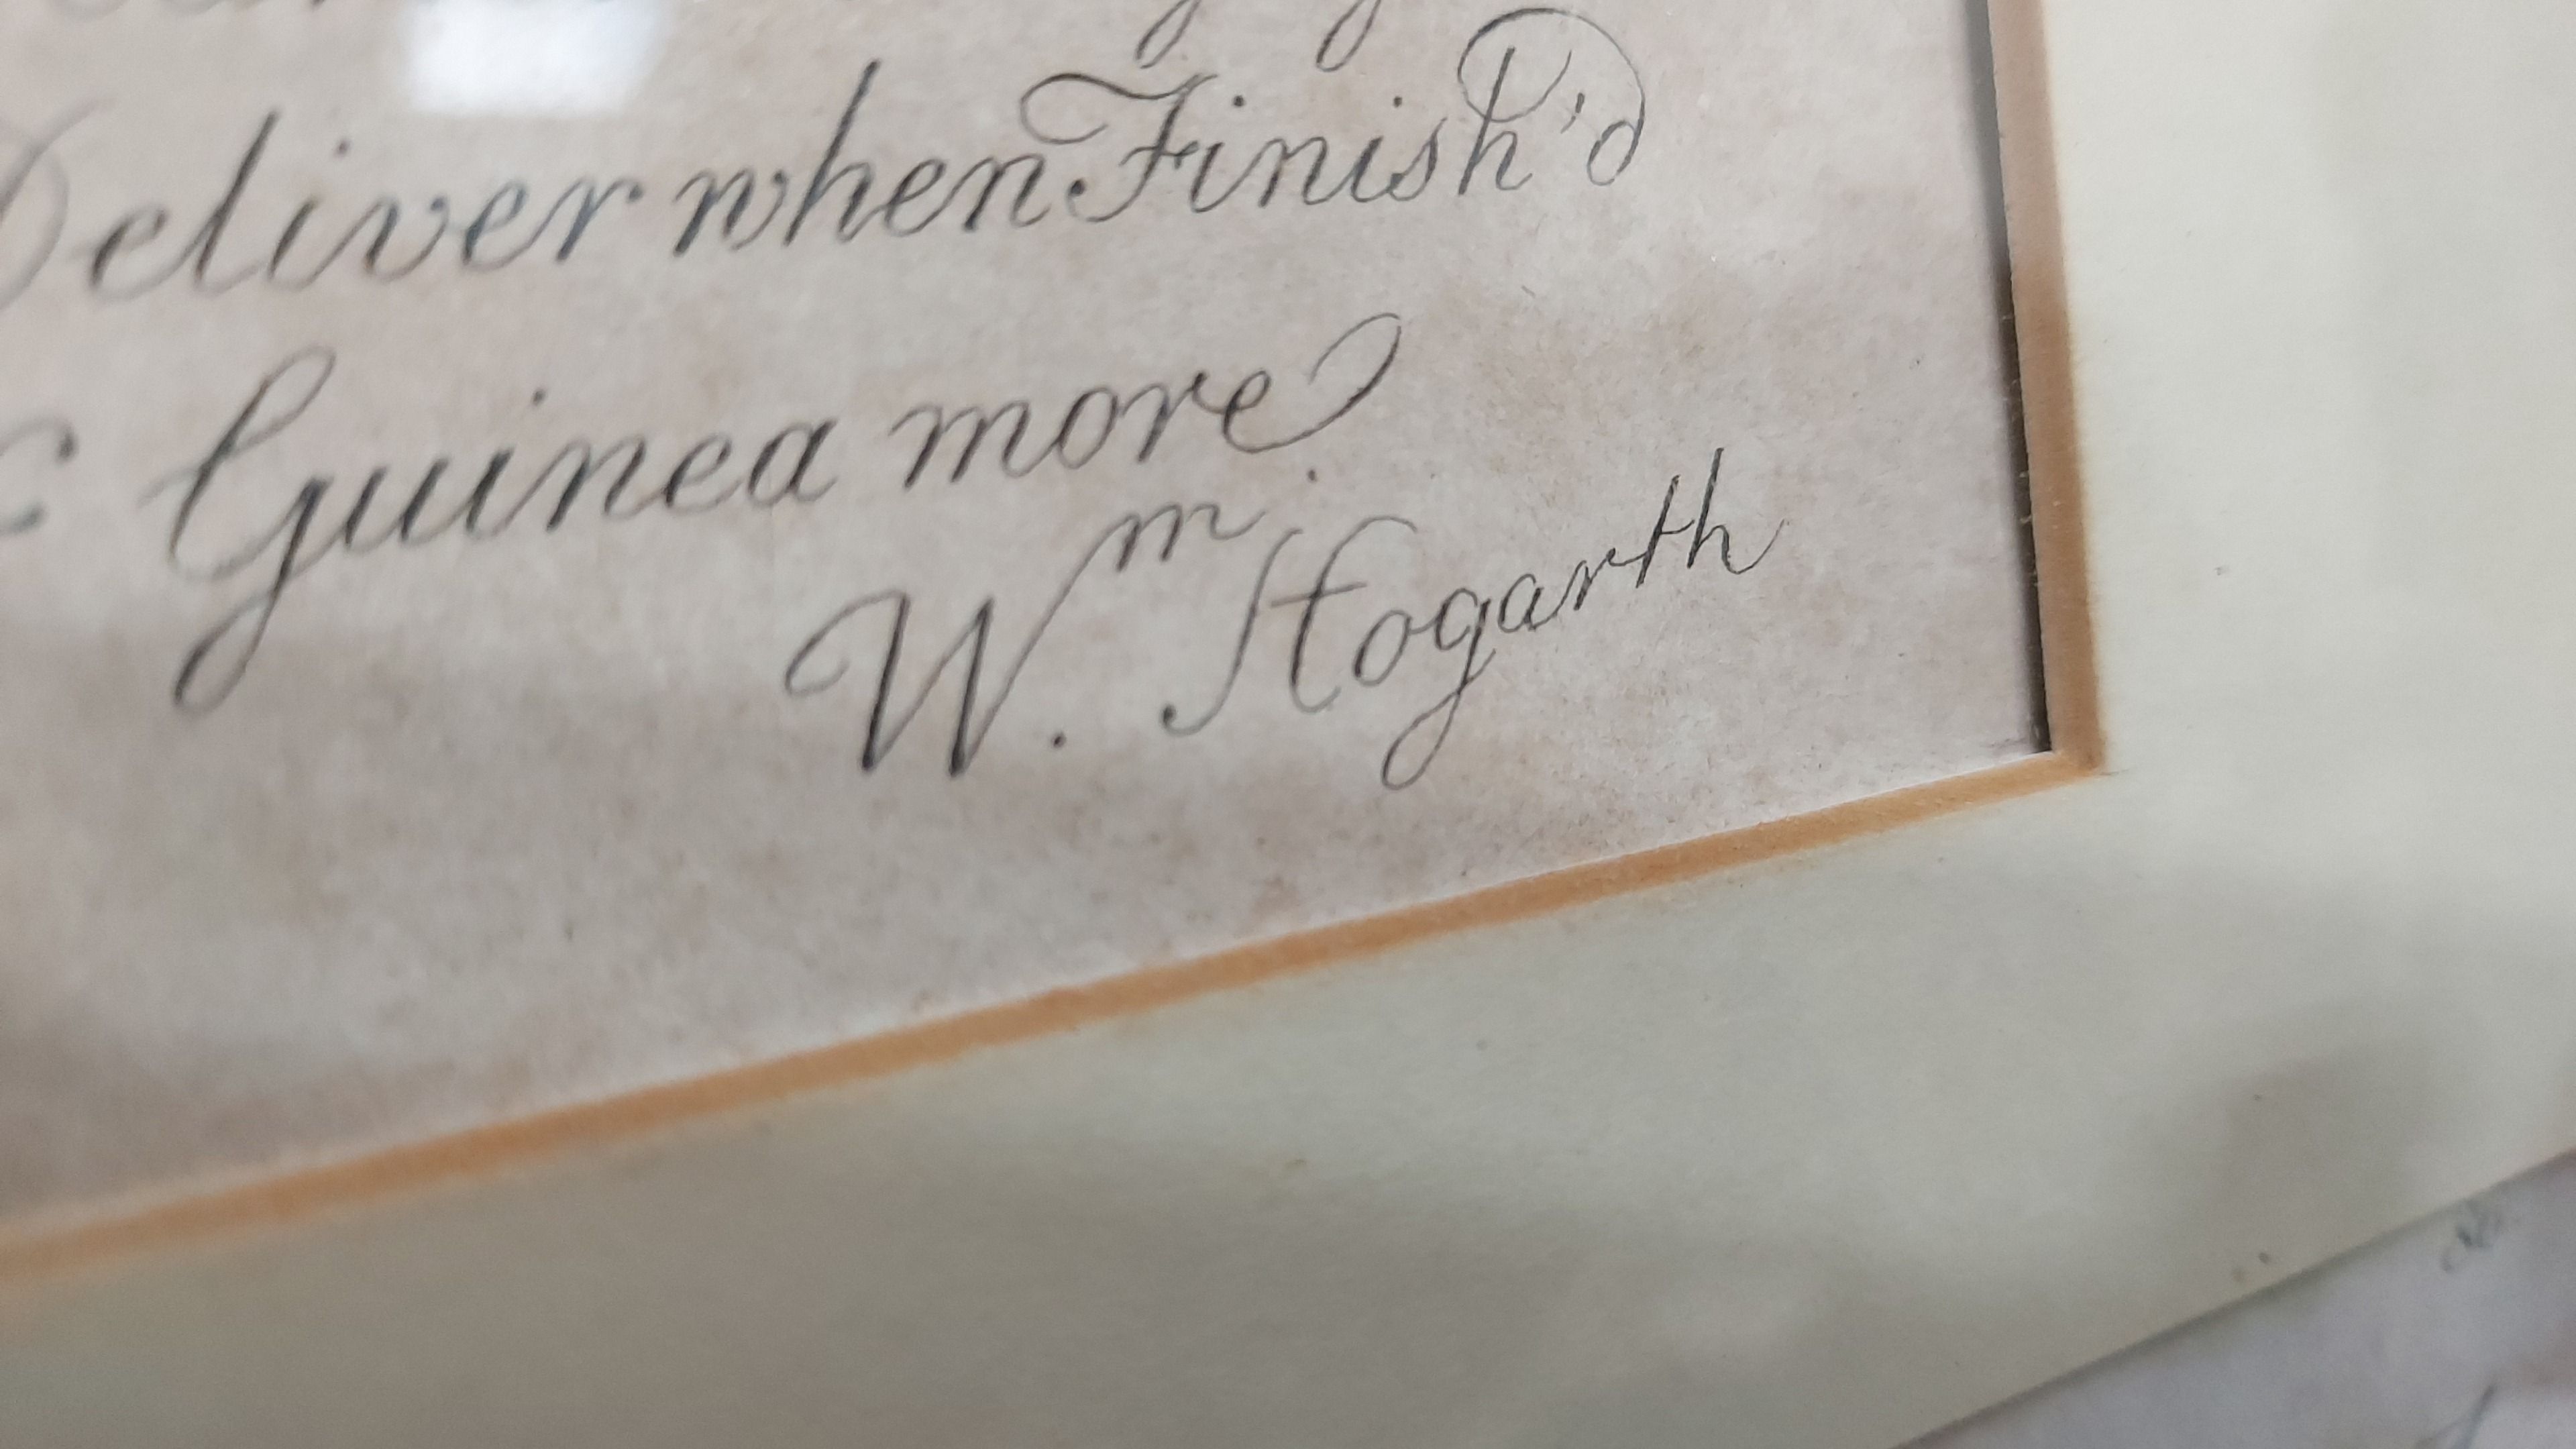 Deliver when Finish'd
Guinea more
Wm. Hogarth